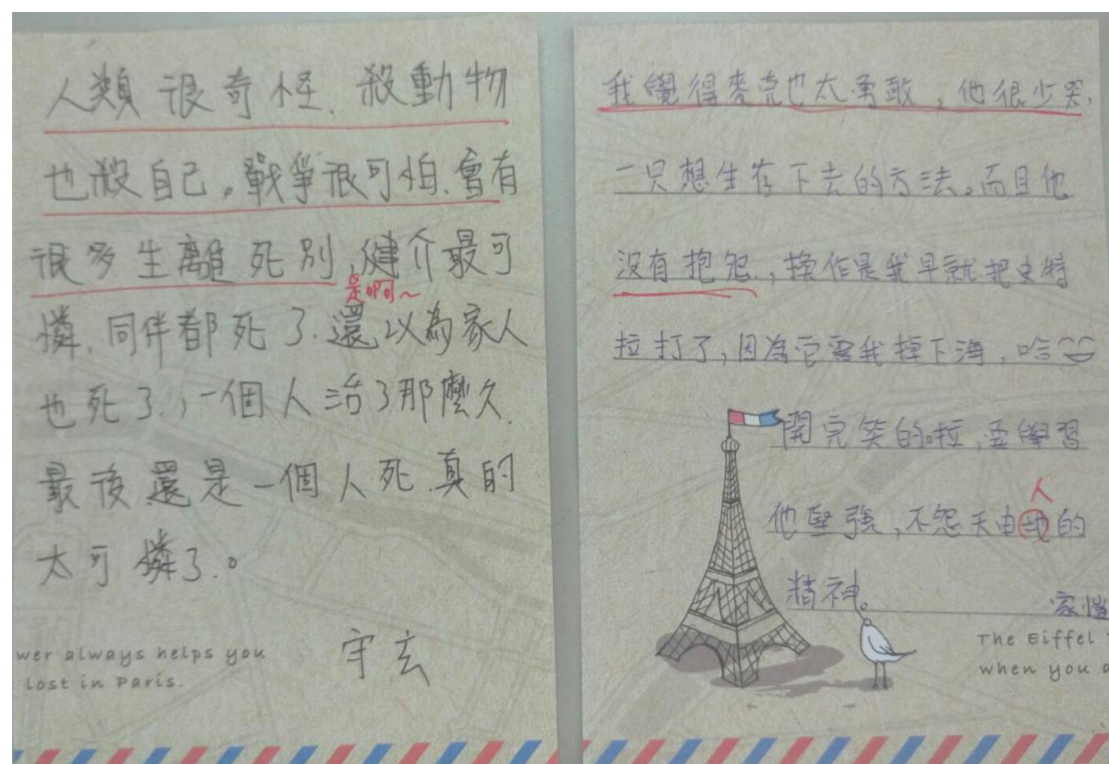 人類很奇怪.殺動物
也殺自己。戰爭很可怕.會有
很多生離死別,健介最可
是啊~
憐.同伴都死了.還以為家人
也死了.,一個人活了那麼久.
最後還是一個人死.真的
太可憐了.。
守玄
wer always helps you
lost in Paris.
我覺得麥克也太勇敢,他很少哭,
一只想生存下去的方法。而且他
沒有抱怨.,換作是我早就把史特
拉打了,因為它害我掉下海,哈
開完笑的啦,要學習
人
他堅強,不怨天由地的
精神。
家愷
The Eiffel
when you a